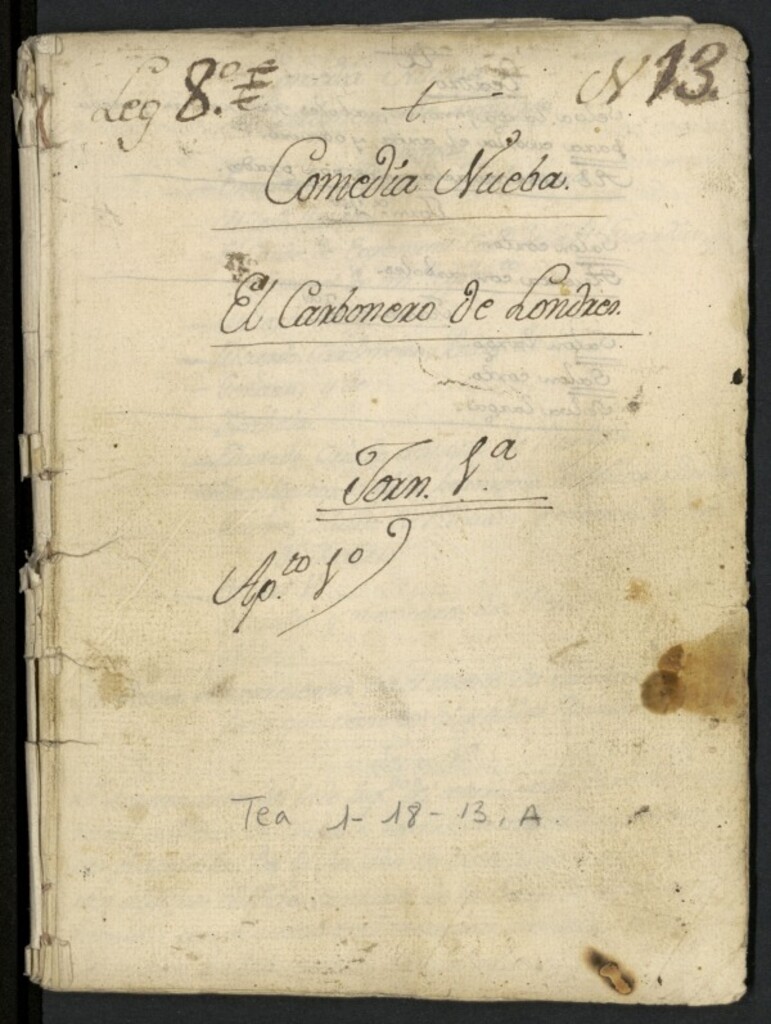 Leg 8.º N 13.
Comedia Nueba.
El Carbonero de Londres.
Jorn. 1.ª
Ap.to 1º
Tea 1-18-13, A.